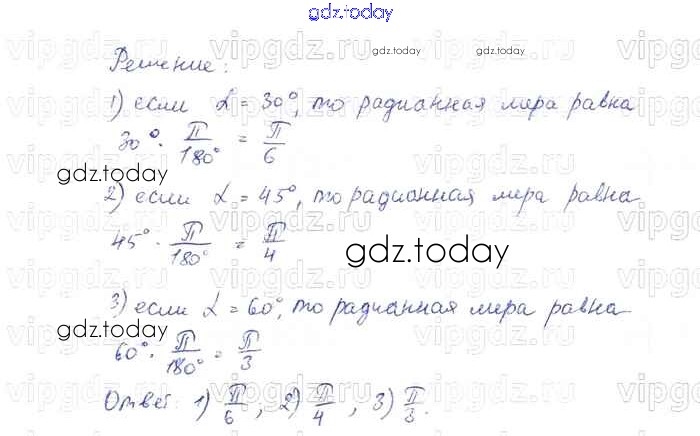 gdz.today
vipgdz.ru vipgdz.ru vipgdz.ru
gdz.today gdz.today
Решение:
1) если α = 30°, то радианная мера равна
30° · π/180° = π/6
gdz.today
2) если α = 45°, то радианная мера равна
45° · π/180° = π/4
gdz.today
3) если α = 60°, то радианная мера равна
gdz.today
60° · π/180° = π/3
Ответ: 1) π/6, 2) π/4, 3) π/3.